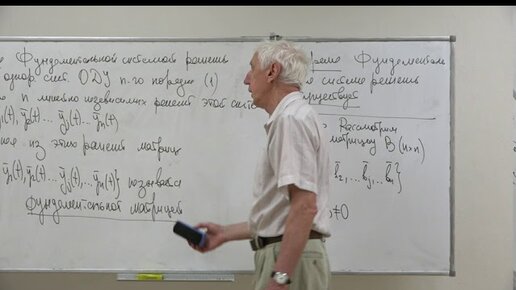 Фундаментальной системой решен
однор. сист. ОДУ n-го порядка (1)
n линейно независимых решений этой сист
ȳ₁(t), ... ȳⱼ(t), ... ȳₙ(t)
из этих решений матриц
ȳ₁(t), ȳ₂(t), ... ȳⱼ(t), ... ȳₙ(t)} называ
фундаментальной матрицей
Фундаментал
системе решений
существует
Рассмотрим
матрицу B (n×n)
b̄₂, ... b̄ⱼ, ... b̄ₙ}
≠0